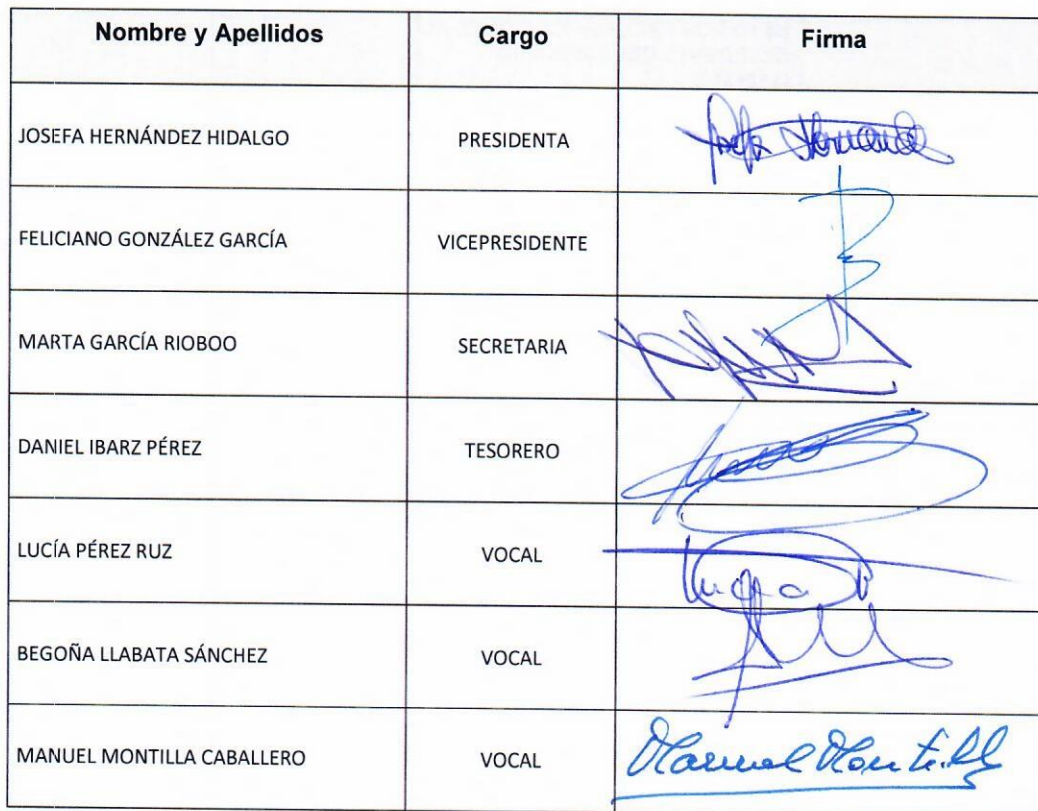 Nombre y Apellidos Cargo Firma
JOSEFA HERNÁNDEZ HIDALGO PRESIDENTA Josefa Hernández
FELICIANO GONZÁLEZ GARCÍA VICEPRESIDENTE
MARTA GARCÍA RIOBOO SECRETARIA
DANIEL IBARZ PÉREZ TESORERO
LUCÍA PÉREZ RUZ VOCAL
BEGOÑA LLABATA SÁNCHEZ VOCAL
MANUEL MONTILLA CABALLERO VOCAL Manuel Montilla